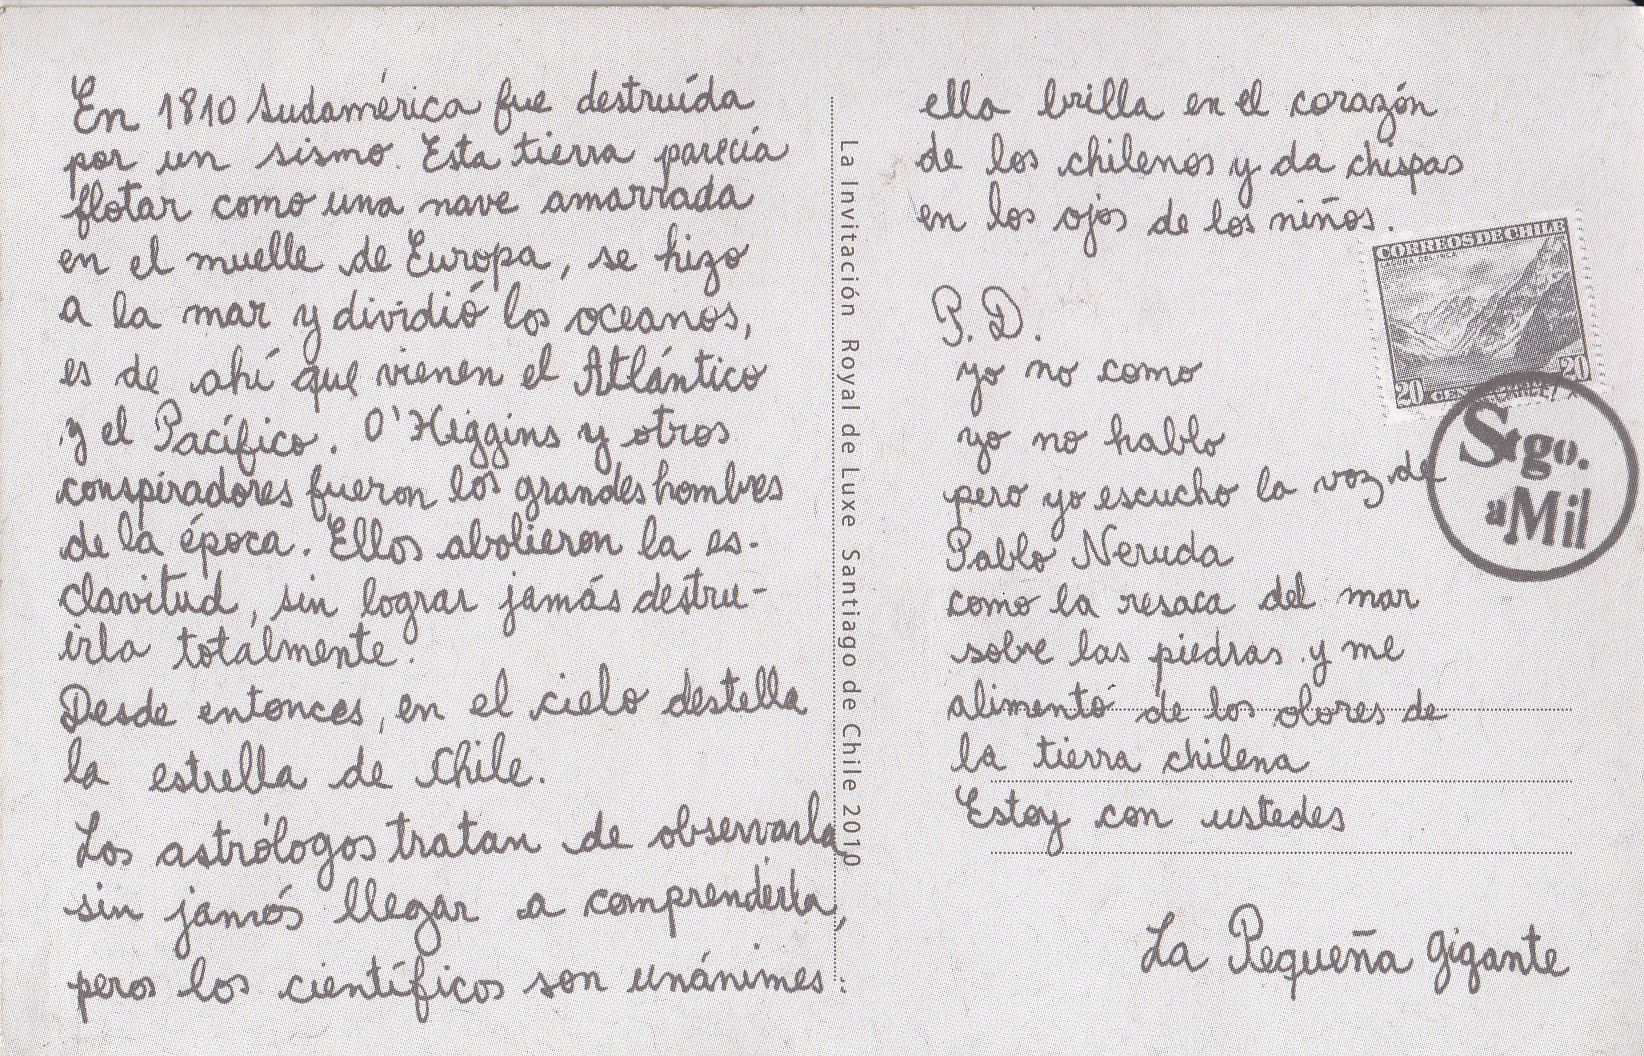 En 1810 Sudamérica fue destruída
por un sismo. Esta tierra parecía
flotar como una nave amarrada
en el muelle de Europa, se hizo
a la mar y dividió los oceanos,
es de ahí que vienen el Atlántico
y el Pacífico. O'Higgins y otros
conspiradores fueron los grandes hombres
de la época. Ellos abolieron la es-
clavitud, sin lograr jamás destru-
irla totalmente.
Desde entonces, en el cielo destella
la estrella de Chile.
Los astrólogos tratan de observarla
sin jamás llegar a comprenderla,
peros los científicos son unánimes:
La Invitación Royal de Luxe Santiago de Chile 2010
ella brilla en el corazón
de los chilenos y da chispas
en los ojos de los niños.
CORREOS DE CHILE
LAGUNA DEL INCA
20
20
Stgo.
a Mil
P.D.
yo no como
yo no hablo
pero yo escucho la voz de
Pablo Neruda
como la resaca del mar
sobre las piedras y me
alimento de los olores de
la tierra chilena
Estoy con ustedes
La Pequeña Gigante